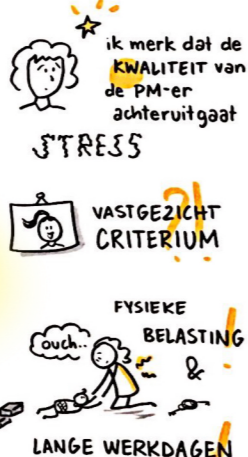 ik merk dat de
KWALITEIT van
de PM-er
achteruitgaat
STRESS
VASTGEZICHT ?!
CRITERIUM
FYSIEKE
ouch..
BELASTING !
&
LANGE WERKDAGEN !